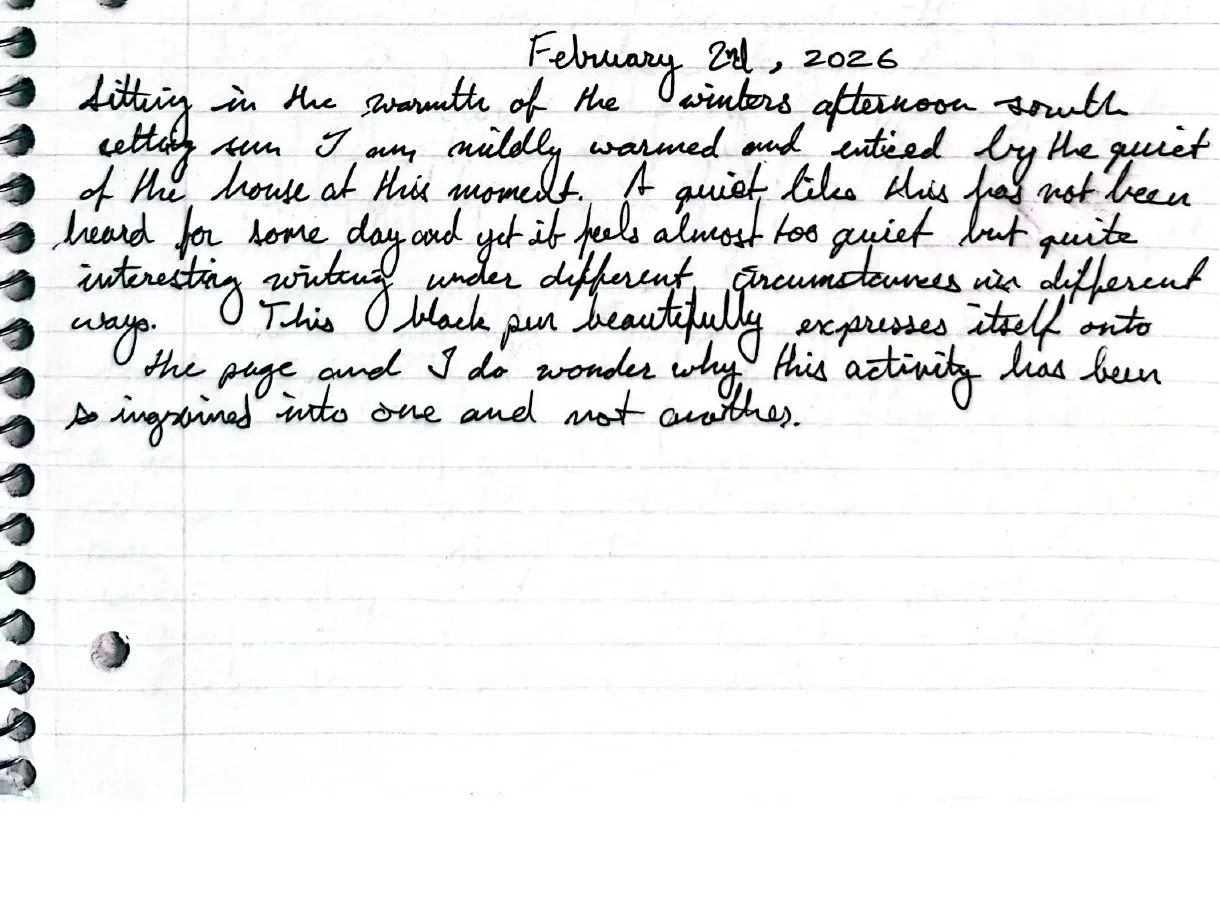 February 2nd, 2026
Sitting in the warmth of the winters afternoon south
setting sun I am mildly warmed and enticed by the quiet
of the house at this moment. A quiet like this has not been
heard for some day and yet it feels almost too quiet but quite
interesting writing under different circumstances in different
ways. This black pen beautifully expresses itself onto
the page and I do wonder why this activity has been
so ingrained into one and not another.